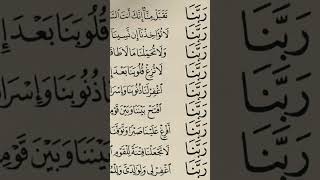 رَبَّنَا تَقَبَّلْ مِنَّا إِنَّكَ أَنتَ
رَبَّنَا لَا تُؤَاخِذْنَا إِن نَّسِينَا
رَبَّنَا وَلَا تُحَمِّلْنَا مَا لَا طَاقَ
رَبَّنَا لَا تُزِغْ قُلُوبَنَا بَعْدَ إِ
رَبَّنَا اغْفِرْ لَنَا ذُنُوبَنَا وَإِسْرَا
رَبَّنَا افْتَحْ بَيْنَنَا وَبَيْنَ قَوْمِ
رَبَّنَا أَفْرِغْ عَلَيْنَا صَبْرًا وَتَوَفَّنَا
رَبَّنَا لَا تَجْعَلْنَا فِتْنَةً لِّلْقَوْمِ
رَبَّنَا اغْفِرْ لِي وَلِوَالِدَيَّ وَلِلْ